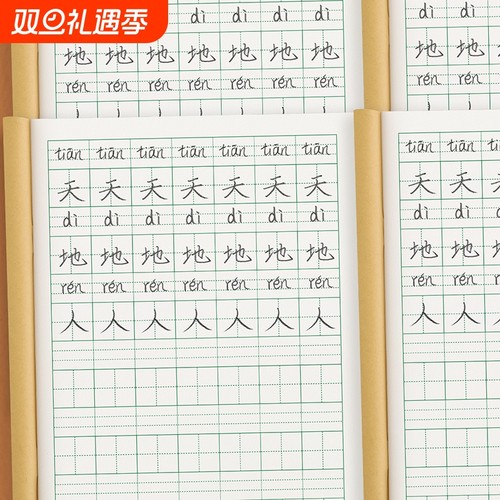 双旦礼遇季
dì dì dì dì
地 地 地 地 地 地 地
rén rén rén rén rén rén rén
dì dì
地 地
rén rén
tiān tiān tiān tiān tiān tiān tiān
天 天 天 天 天 天 天
dì dì dì dì dì dì dì
地 地 地 地 地 地 地
rén rén rén rén rén rén rén
人 人 人 人 人 人 人
tiān tiān
天 天 天
dì dì
地 地
rén rén
人 人